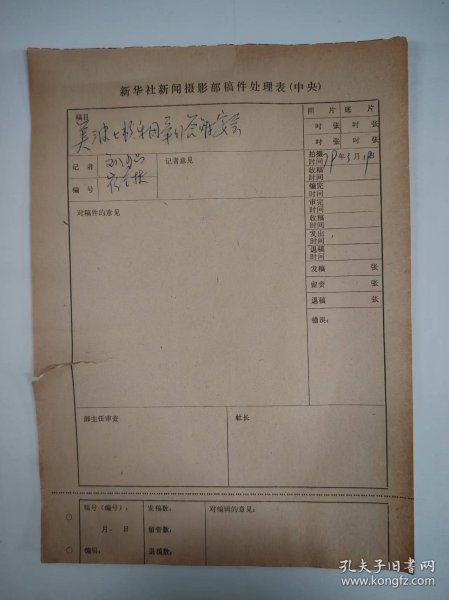 新华社新闻摄影部稿件处理表(中央)
稿目
照片 底片
时 张 时 张
时 张 时 张
记者
记者意见
编号
拍摄时间 79年5月
收稿时间
编完时间
审定时间
收稿时间
发出时间
退稿时间
对稿件的意见
发稿 张
留资 张
退稿 张
错误:
部主任审查
社长
稿号(编号):
发稿数:
对编辑的意见:
月 日
留资数:
编辑:
退稿数:
孔夫子旧书网
book.kongfz.com